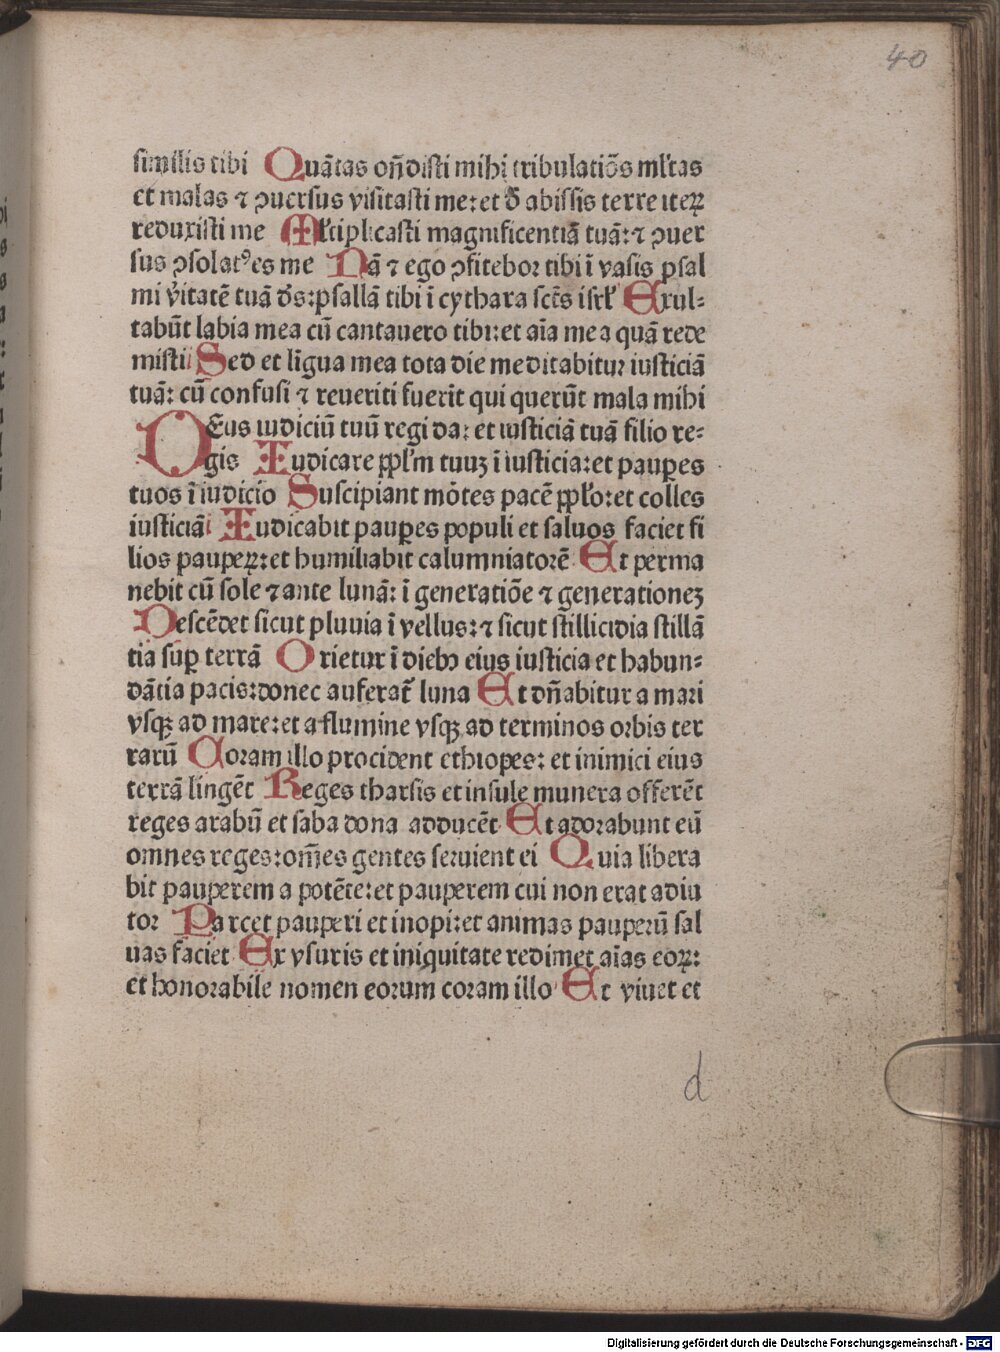 40
similis tibi Quãtas oñdisti mihi tribulatiõs ml'tas
et malas ⁊ ꝯuersus visitasti me: et d̄ abissis terre iteꝝ
reduxisti me Ml'tiplicasti magnificentiã tuã: ⁊ ꝯuer
sus ꝯsolatꝰ es me Nã ⁊ ego ꝯfitebor tibi ĩ vasis psal
mi v̓itatẽ tuã ds̄: psallã tibi ĩ cythara sct̄s isrl' Exul-
tabũt labia mea cũ cantauero tibi: et aĩa mea quã rede
misti Sed et lĩgua mea tota die meditabitur iusticiã
tuã: cũ confusi ⁊ reueriti fuerĩt qui querũt mala mihi
DEus iudiciũ tuũ regi da: et iusticiã tuã filio re-
gis Iudicare ppl'm tuuʒ ĩ iusticia: et pauꝑes
tuos ĩ iudicio Suscipiant mõtes pacẽ ppl'o: et colles
iusticiã Iudicabit pauꝑes populi et saluos faciet fi
lios pauꝑeꝝ: et humiliabit calumniatorẽ Et perma
nebit cũ sole ⁊ ante lunã: ĩ generatiõe ⁊ generationeʒ
Descẽdet sicut pluuia ĩ vellus: ⁊ sicut stillicidia stillã
tia suꝑ terrã Orietur ĩ diebꝫ eius iusticia et habun-
dãtia pacis: donec auferat̃ luna Et dñabitur a mari
vsqꝫ ad mare: et a flumine vsqꝫ ad terminos orbis ter
rarũ Coram illo procident ethiopes: et inimici eius
terrã lingẽt Reges tharsis et insule munera offerẽt
reges arabũ et saba dona adducẽt Et adorabunt eũ
omnes reges: om̃es gentes seruient ei Quia libera
bit pauperem a potẽte: et pauperem cui non erat adiu
tor Parcet pauperi et inopi: et animas pauperũ sal
uas faciet Ex vsuris et iniquitate redimet aĩas eoꝝ:
et honorabile nomen eorum coram illo Et viuet et
d
Digitalisierung gefördert durch die Deutsche Forschungsgemeinschaft - DFG